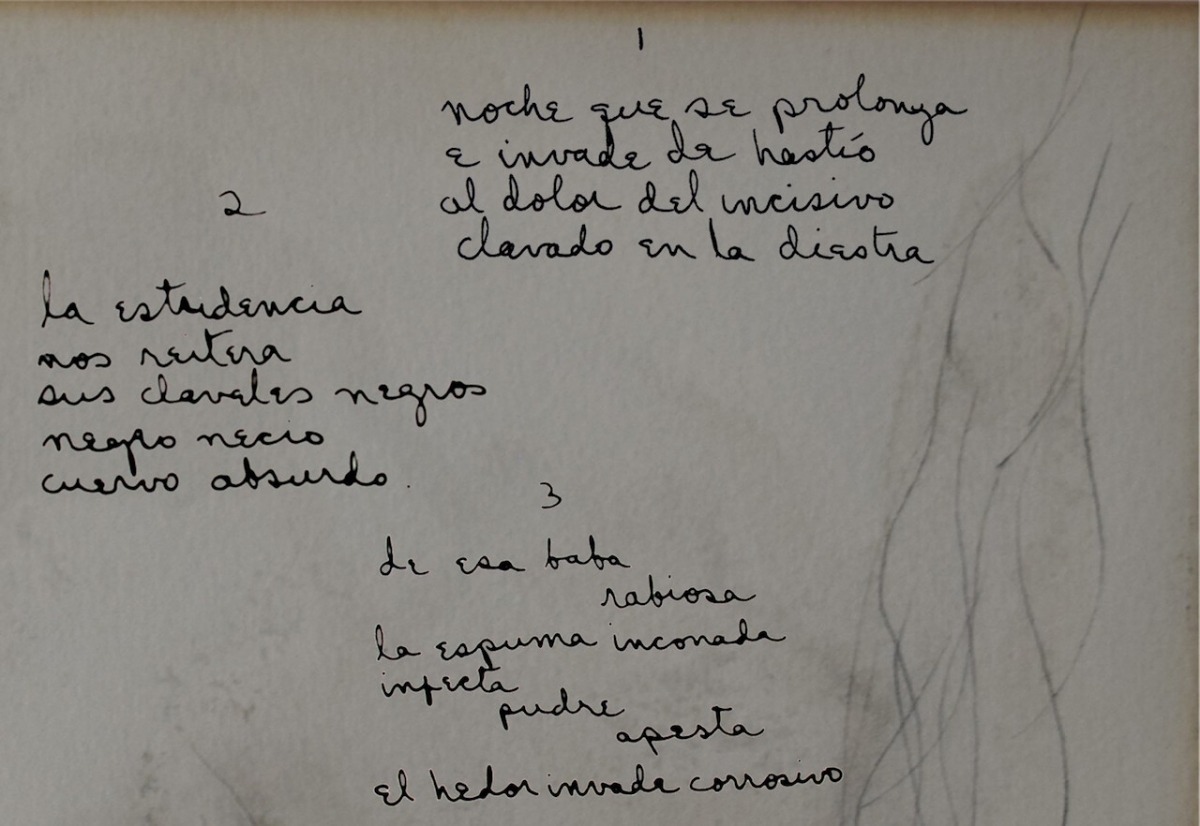 1
noche que se prolonga
e invade de hastío
al dolor del incisivo
clavado en la diestra
2
la estridencia
nos reitera
sus claveles negros
negro necio
cuervo absurdo.
3
de esa baba
rabiosa
la espuma inconada
infecta
pudre
apesta
el hedor invade corrosivo